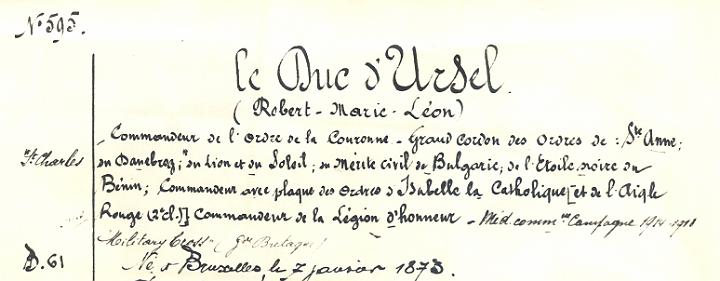 No 595.
le Duc d'Ursel.
(Robert-Marie-Léon)
Commandeur de l'Ordre de la Couronne - Grand Cordon des Ordres de : Ste Anne;
"St Charles
du Danebrog; du Lion et du Soleil; du Mérite civil de Bulgarie; de l'Etoile noire du
Bénin; Commandeur avec plaque des Ordres d'Isabelle la Catholique [et de l'Aigle
Rouge (2e cl.)] Commandeur de la Légion d'honneur - Méd. comm. Campagne 1914-1918
Military Cross (Gde Bretagne)
D.61
Né à Bruxelles, le 7 janvier 1873.